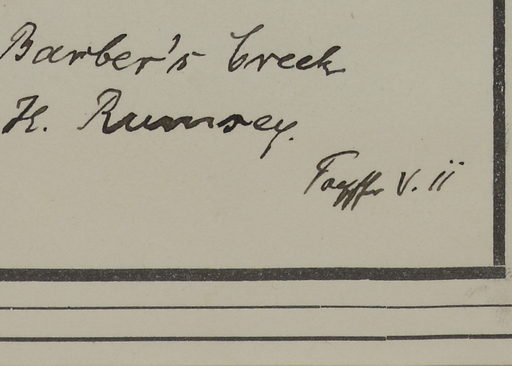 Barber's Creek
H. Rumsey.
V. ii